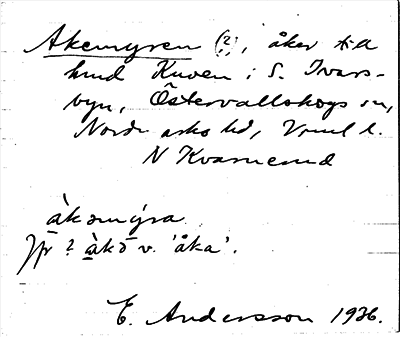 Akemyren (?), åker till
hmd Kuven i S. Ivars-
byn, Östervallskogs sn,
Nordm arks hd, Vrml l.
N Kvarnemd
àkəmýra
Jfr ? àkə v. 'åka'.
E. Andersson 1936.